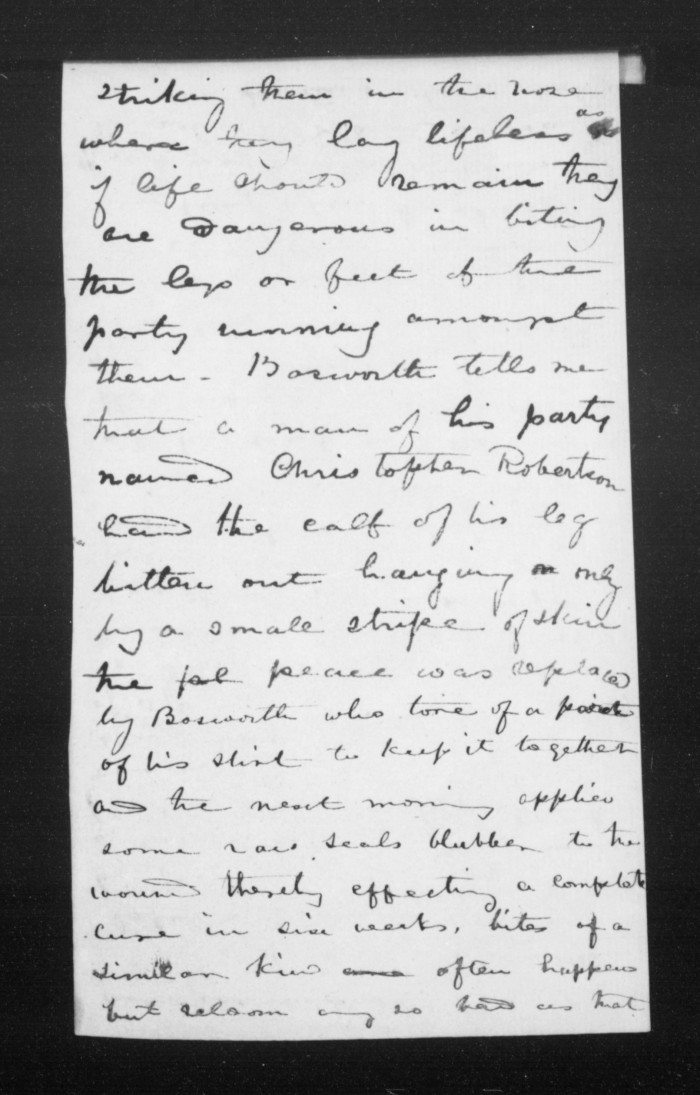 striking them in the nose
where they lay lifeless as
if life should remain they
are dangerous in biting
the legs or feet of the
party running amongst
them - Bosworth tells me
that a man of his party
named Christopher Robertson
had the calf of his leg
bitten out hanging on only
by a small stripe of skin
the peace was replaced
by Bosworth who tore of a
of his shirt to keep it together
and the next morning applied
some raw seals blubber to the
wound thereby effecting a complete
cure in six weeks, bites of a
similar kind often happens
but seldom any so bad as that